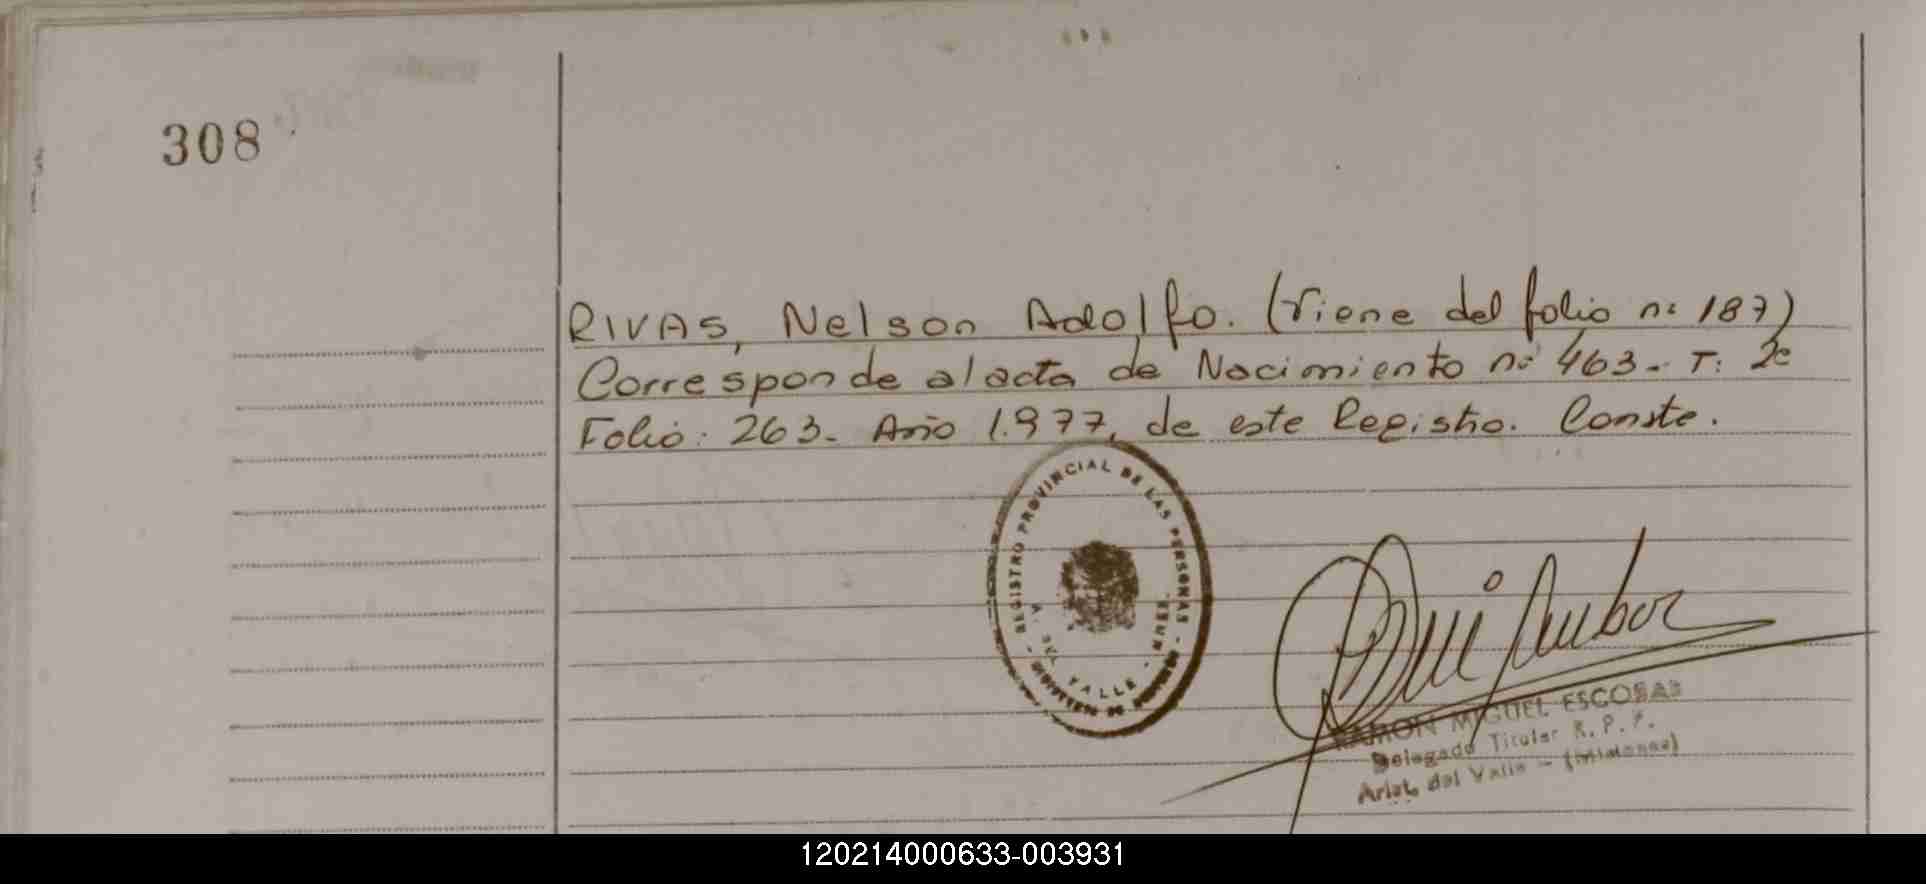 308
RIVAS, Nelson Adolfo. (Viene del folio nº 187)
Corresponde al acta de Nacimiento nº 463 - T: 2º
Folio: 263 - Año 1.977, de este Registro. Conste.
REGISTRO PROVINCIAL DE LAS PERSONAS
DEL VALLE
RAMON MIGUEL ESCOBAR
Delegado Titular R. P. P.
Arist. del Valle - (Misiones)
120214000633-003931